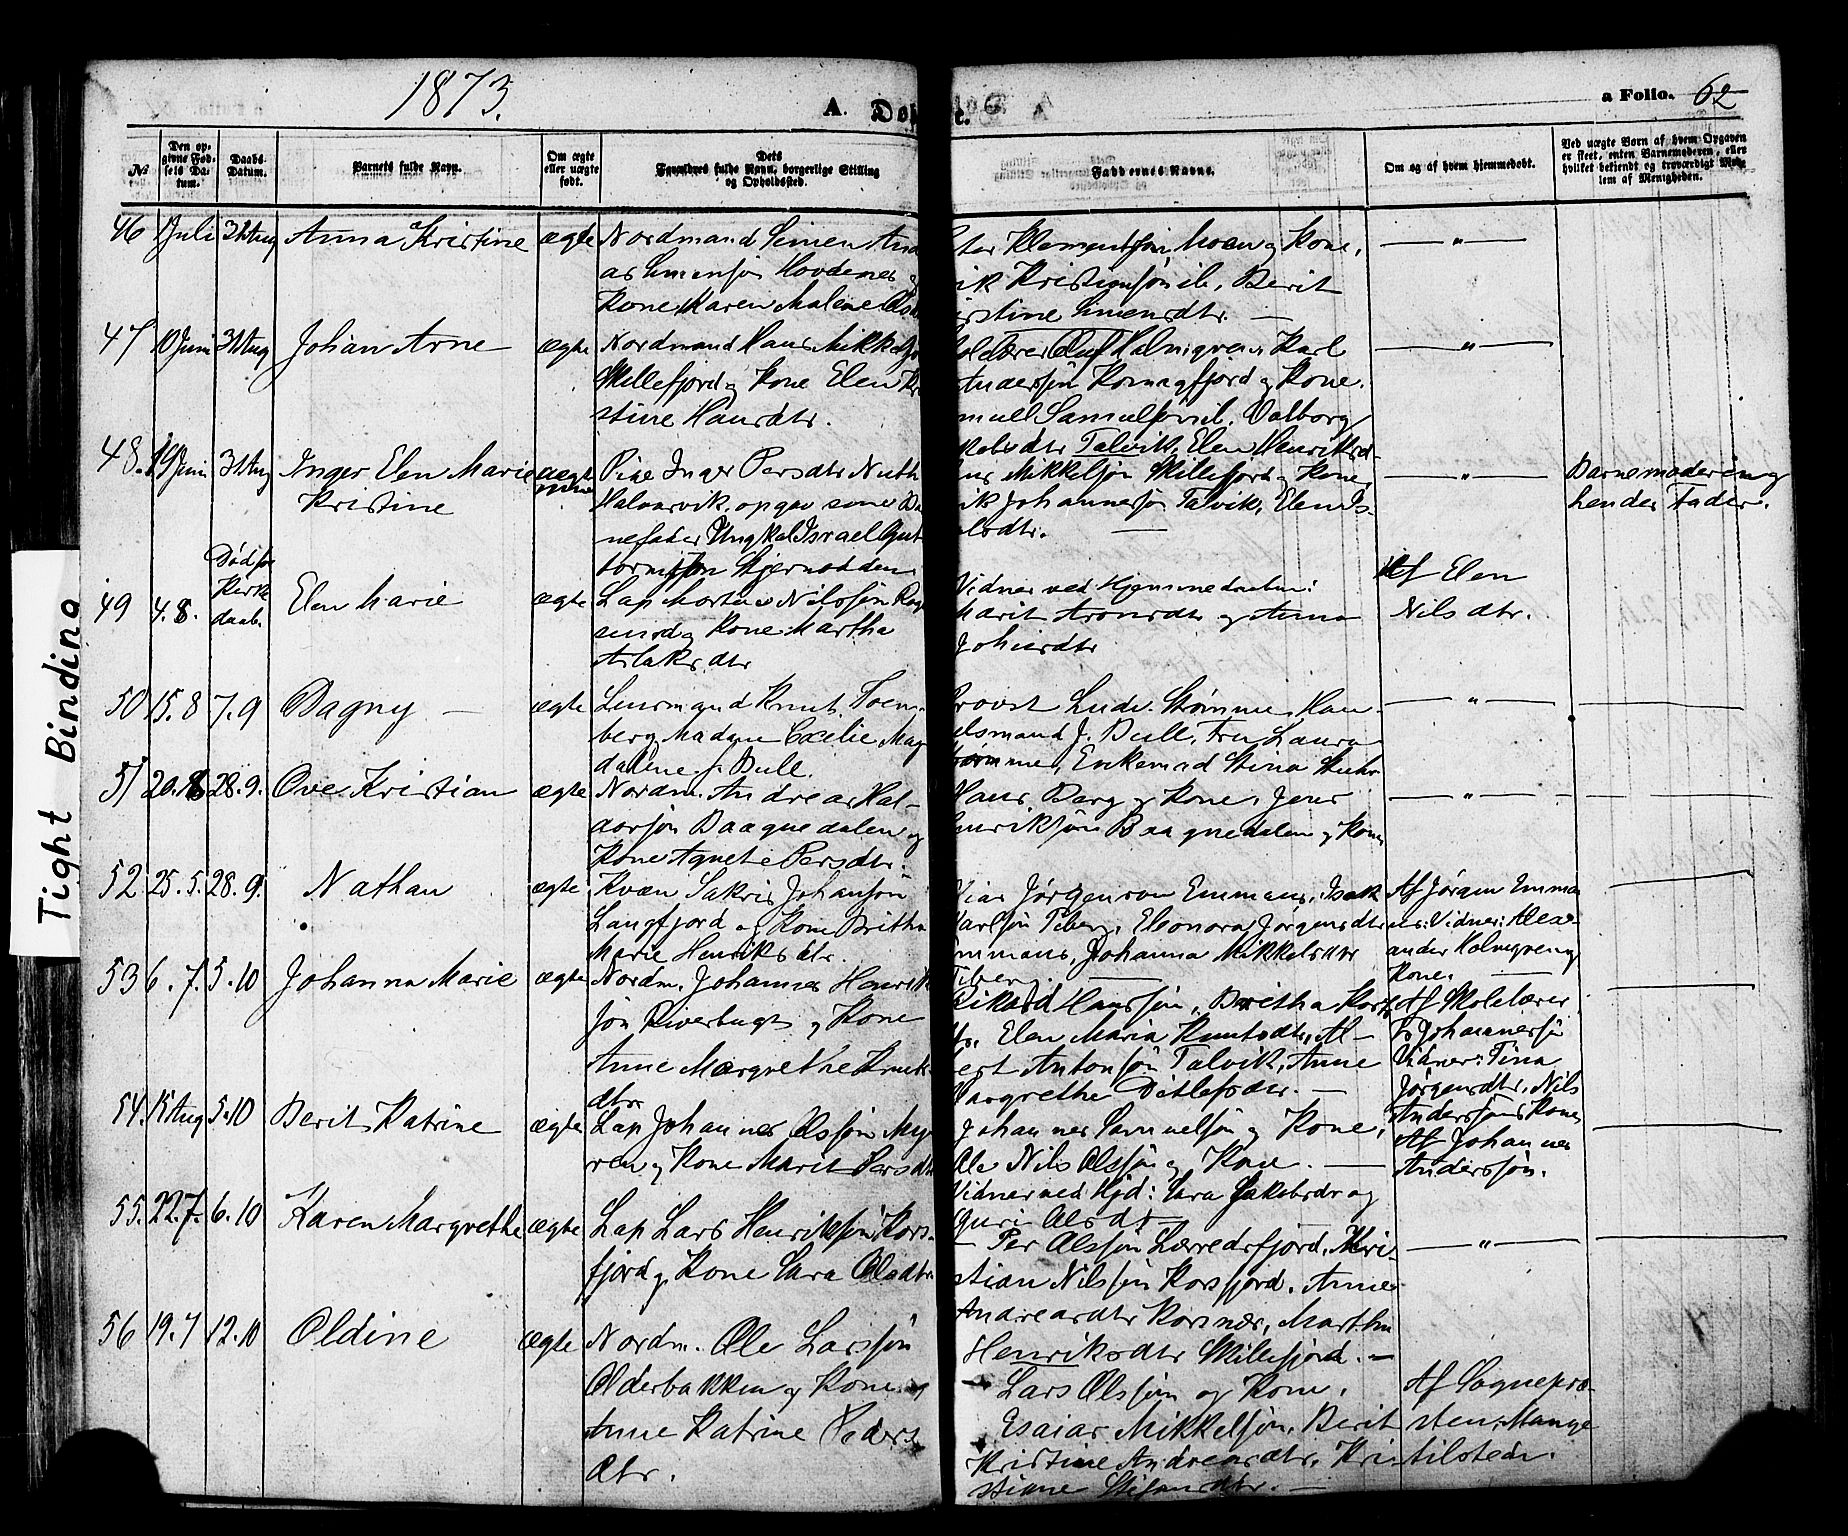 1873.
A. Dø
t.
a Folio. 62
№
Den opgivne Fødsels Datum.
Daabs-Datum.
Barnets fulde Navn.
Om ægte eller uægte født.
Dets Forældres fulde Navn, borgerlige Stilling og Opholdssted.
Faddernes Navne.
Om og af hvem hjemmedøbt.
Ved uægte Børn af hvem Opgaven er skeet, enten Barnemoderen, eller hvilket bekjendt og troværdigt Medlem af Menigheden.
46 1 Juli 31 Aug Anna Kristine ægte Nordmand Simen And
as Simensøn Hovdenes
Kone Karen Malene Ols
ter Klementsøn Moen og Kone,
ik Kristiansøn ib. Berit
istine Simensdtr. —
— " —
47 10 Juni 31 Aug Johan Arne ægte Nordmand Hans Mikkels
Skillefjord og Kone Elen Kr
stine Hansdtr.
olelærer Oluf Holmgren, Karl
Andersøn Komagfjord og Kone.
muel Samuelsøn ib. Valborg
kelsdtr Talvik, Elen Henriksd
— " —
48. 19 Juni 31 Aug Inger Elen Marie uægte
Kristine
Pige Inger Persdtr
Halvarvik, opgav som Ba
nefader Ungkal Israel Gut
tormsøn Stjernodden
ns Mikkelsøn Skillefjord og Kone
ik Johannesøn Talvik, Elen Is
elsdtr. —
— " —
Barnemoderen og
hendes Fader.
49 4.8. Død før
Kirk
daab.
Elen Marie ægte Lap Morten Nilssøn
sund og Kone Martha
Aslaksdtr
Vidner ved Hjemmedaaben:
Marit Aronsdtr og Anna
Johnsdtr
Af Elen
Nilsdtr.
50 15.8 7.9 Dagny — ægte Lensmand Knut Foen-
berg Madame Cecilie Mag
dalene f. Bull.
Provst Ludv. Stømme, Han-
elsmand J. Bull, Fru Laura
tømme, Enkemad Stina Stuhr
— " —
51 20.8 28.9. Ove Kristian ægte Nordm. Andreas Hal-
dorsøn Baagnedalen og
Kone Agnete Persdtr.
Hans Barg og Kone, Jens
enriksøn Baagnedalen og Kone
— " —
52 25.5. 28.9. Nathan ægte Kvæn Sakris Johansøn
Langfjord og Kone Britha
Marie Henriksdtr.
Vias Jørgenson Emmaus, Isak
Karlsøn Tiberg, Eleonora Jørgensdtr
mmaus, Johanna Mikkelsdtr
Tiberg
Af Jørgen Emma
us. Vidner: Alex
ander Holmgren og
Kone. —
53 6.7. 5.10 Johanna Marie ægte Nordm. Johannes Henrik
søn Riverbugt og Kone
Anne Margrethe Knut
dtr
Rikard Hanssøn, Britha Karls
Elen Maria Knutsdtr, Al-
bert Antonsøn Talvik, Anne
Margrethe Ditlefsdtr. —
Af Skolelærer
Johannesøn
Vidner: Tina
Jørgensdtr, Nils
Anderssøns Kone
54. 15 Aug 5.10 Berit Katrine ægte Lap Johannes Olssøn My-
ren og Kone Marit Persdtr
Johannes Samuelsøn og Kone,
Ole Nils Olssøn og Kone. —
Vidner ved Hjd: Sara Jakobsdr og
Guri Olsdtr
Af Johannes
Anderssøn.
55. 22.7. 6.10 Karen Margrethe ægte Lap Lars Henriksøn Kors-
fjord og Kone Sara Olsdtr
— Per Olssøn Lerredsfjord, Kri-
stian Nilssøn Korsfjord, Anne
Andreasdtr Korsnæs, Martha
Henriksdtr Skillefjord. —
— " —
56 19.7 12.10 Oldine ægte Nordm. Ole Larssøn
Olderbakken og Kone
Anne Katrine Peders
dtr.
Lars Olssøn og Kone,
Esaias Mikkelsøn, Berit
Kristine Andreasdtr, Kri-
stiane Stefansdtr. —
Af Sognepræ-
sten. Mange
tilstede.
Tight Binding